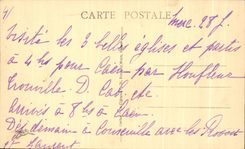 4/
CARTE POSTALE
merc. 28 f.
visité les 3 belles églises et partis
à 4 hs pour Caen par Honfleur
Trouville. D. Cab, etc
arrivés à 8 hs à Caen.
Dej. demain à Courseulle avec les
St Laurent